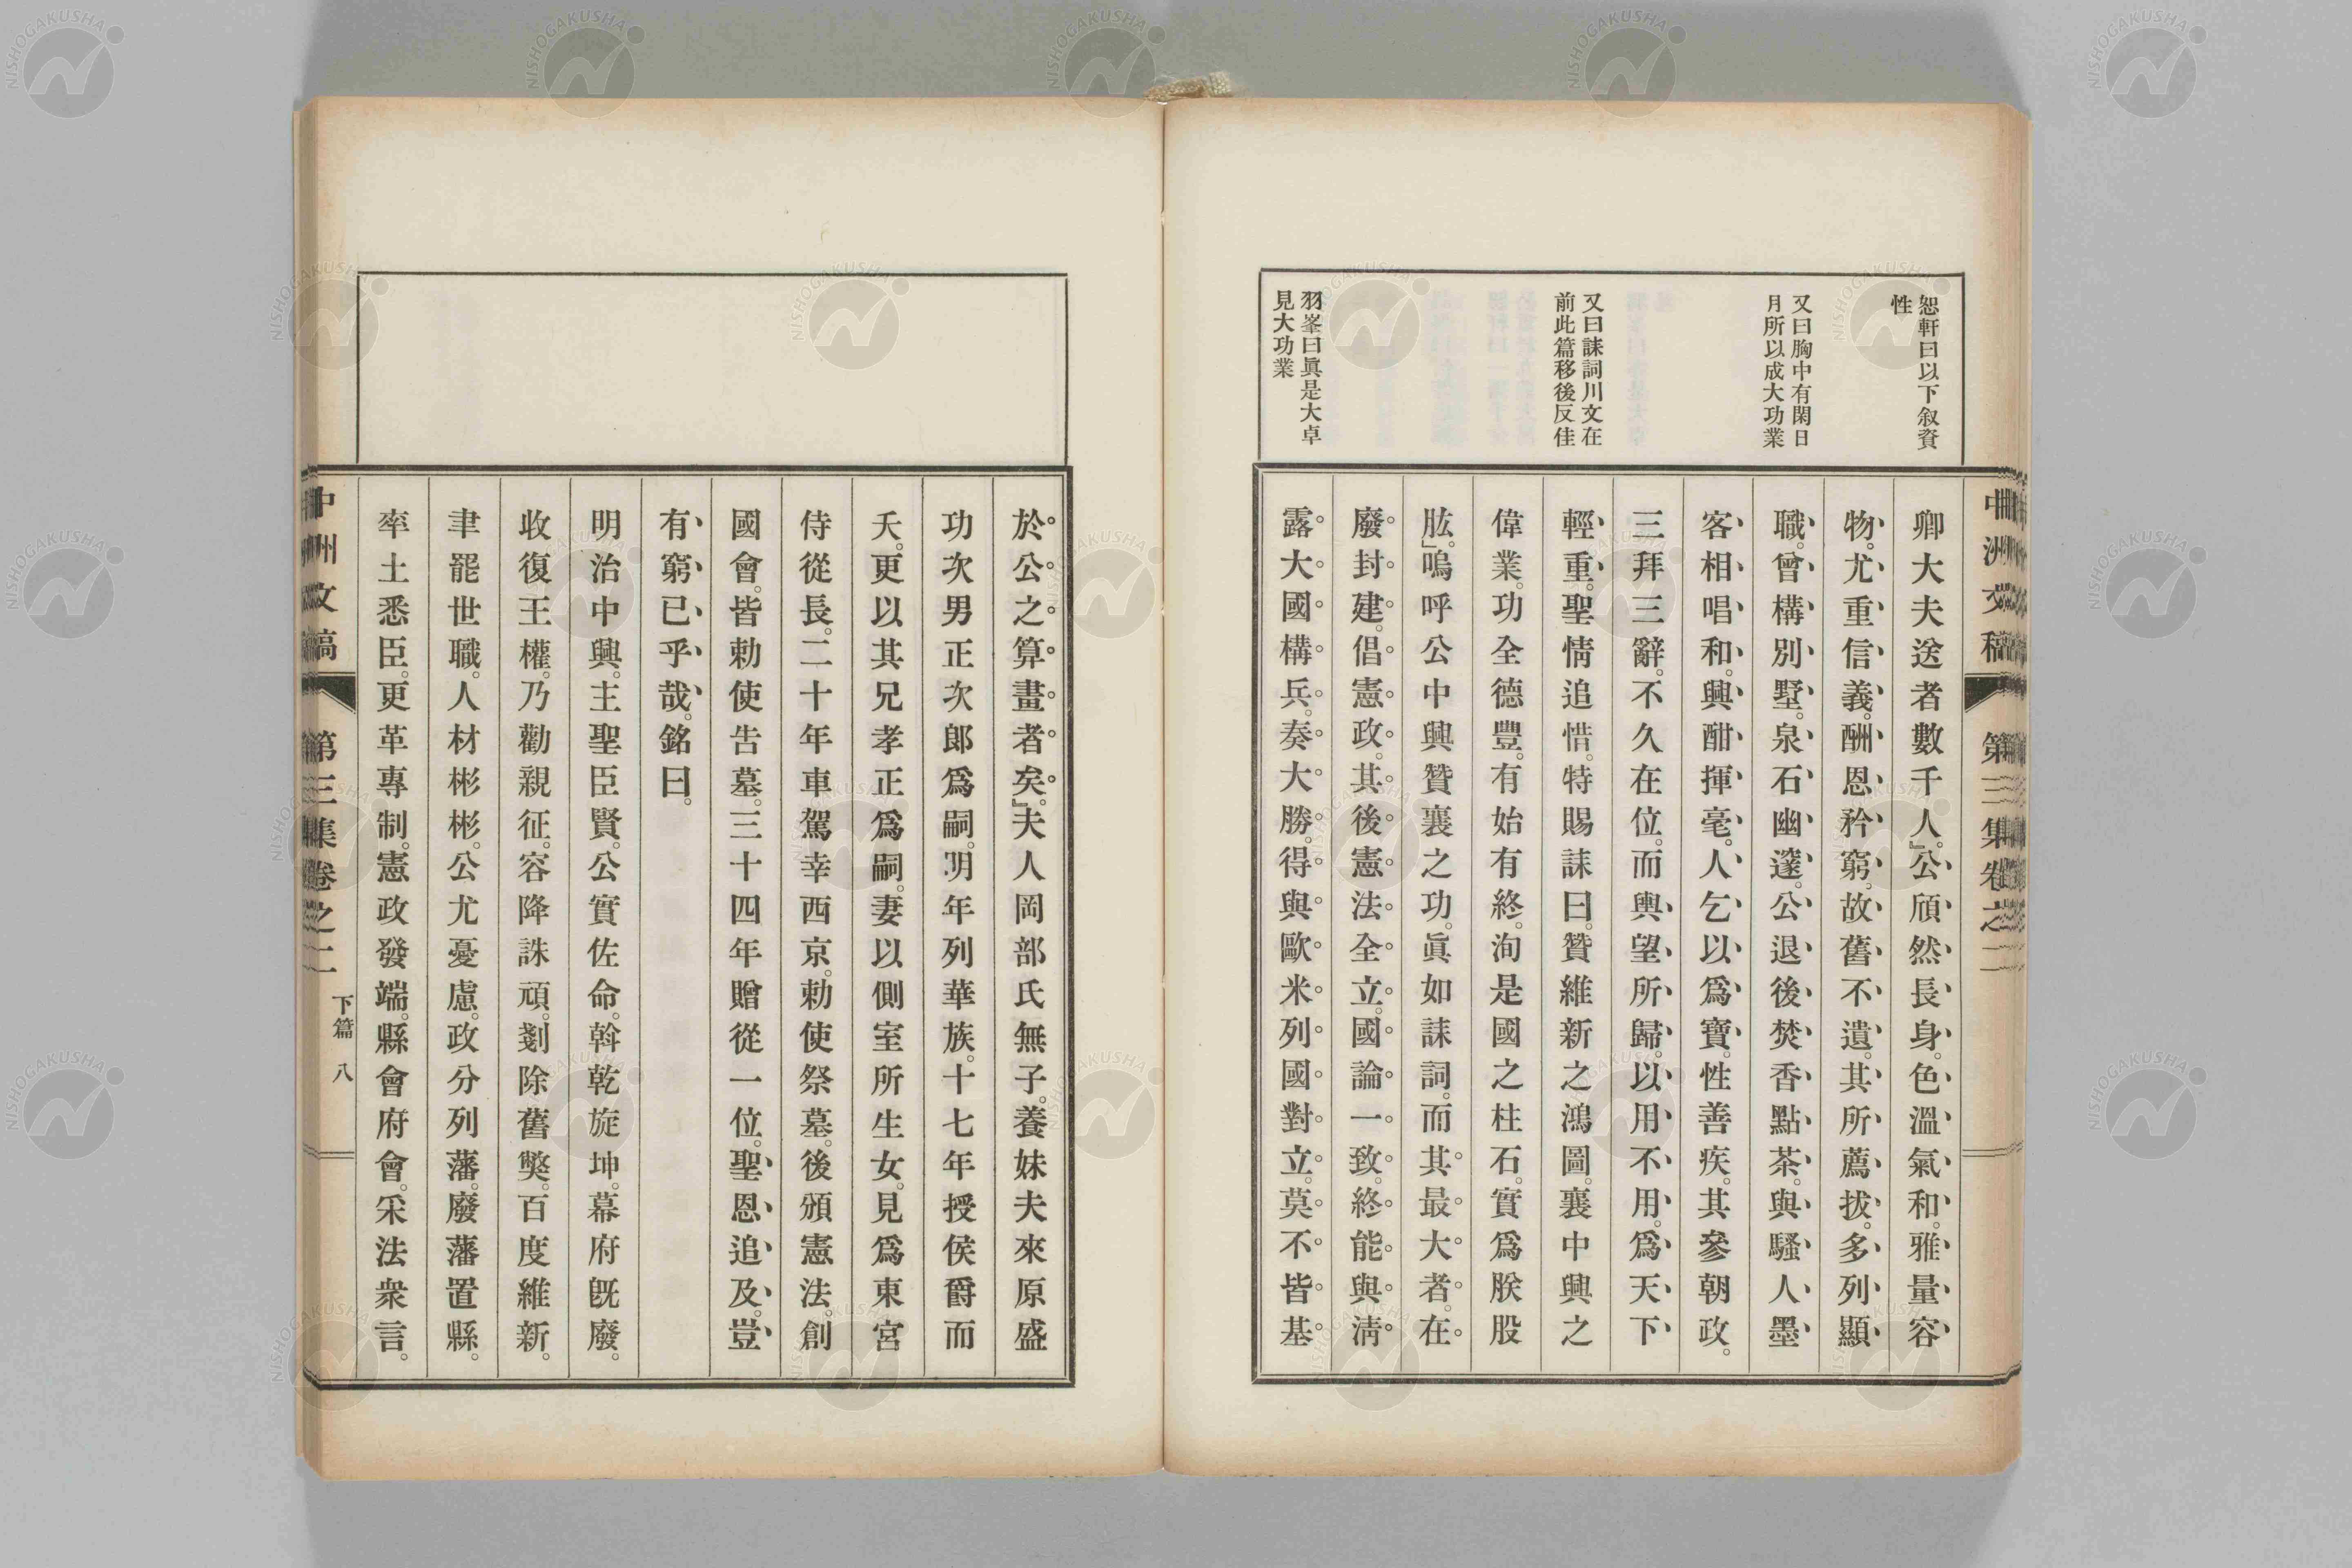 中洲文稿 第三集卷之二
恕軒曰以下叙資
性
又曰胸中有閑日
月所以成大功業
又曰誄詞川文在
前此篇移後反佳
羽峯曰眞是大卓
見大功業
卿大夫送者數千人。』公頎然長身。色溫氣和。雅量容
物。尤重信義。酬恩矜窮。故舊不遺。其所薦拔。多列顯
職。曾構別墅。泉石幽邃。公退後焚香點茶。與騷人墨
客相唱和。興酣揮毫。人乞以爲寶。性善疾。其參朝政。
三拜三辭。不久在位。而輿望所歸。以用不用。爲天下
輕重。聖情追惜。特賜誄曰。贊維新之鴻圖。襄中興之
偉業。功全德豐。有始有終。洵是國之柱石。實爲朕股
肱。』嗚呼公中興贊襄之功。眞如誄詞。而其最大者。在
廢封建。倡憲政。其後憲法全立。國論一致。終能與淸
露大國構兵。奏大勝。得與歐米列國對立。莫不皆基
於公之算畫者矣。』夫人岡部氏無子。養妹夫來原盛
功次男正次郎爲嗣。明年列華族。十七年授侯爵而
夭。更以其兄孝正爲嗣。妻以側室所生女。見爲東宮
侍從長。二十年車駕幸西京。勅使祭墓。後頒憲法。創
國會。皆勅使告墓。三十四年贈從一位。聖恩追及。豈
有窮已乎哉。銘曰。
明治中興。主聖臣賢。公實佐命。斡乾旋坤。幕府旣廢。
收復王權。乃勸親征。容降誅頑。剗除舊獘。百度維新。
聿罷世職。人材彬彬。公尤憂慮。政分列藩。廢藩置縣。
率土悉臣。更革專制。憲政發端。縣會府會。采法衆言。
中洲文稿 第三集卷之二 下篇 八
NISHOGAKUSHA